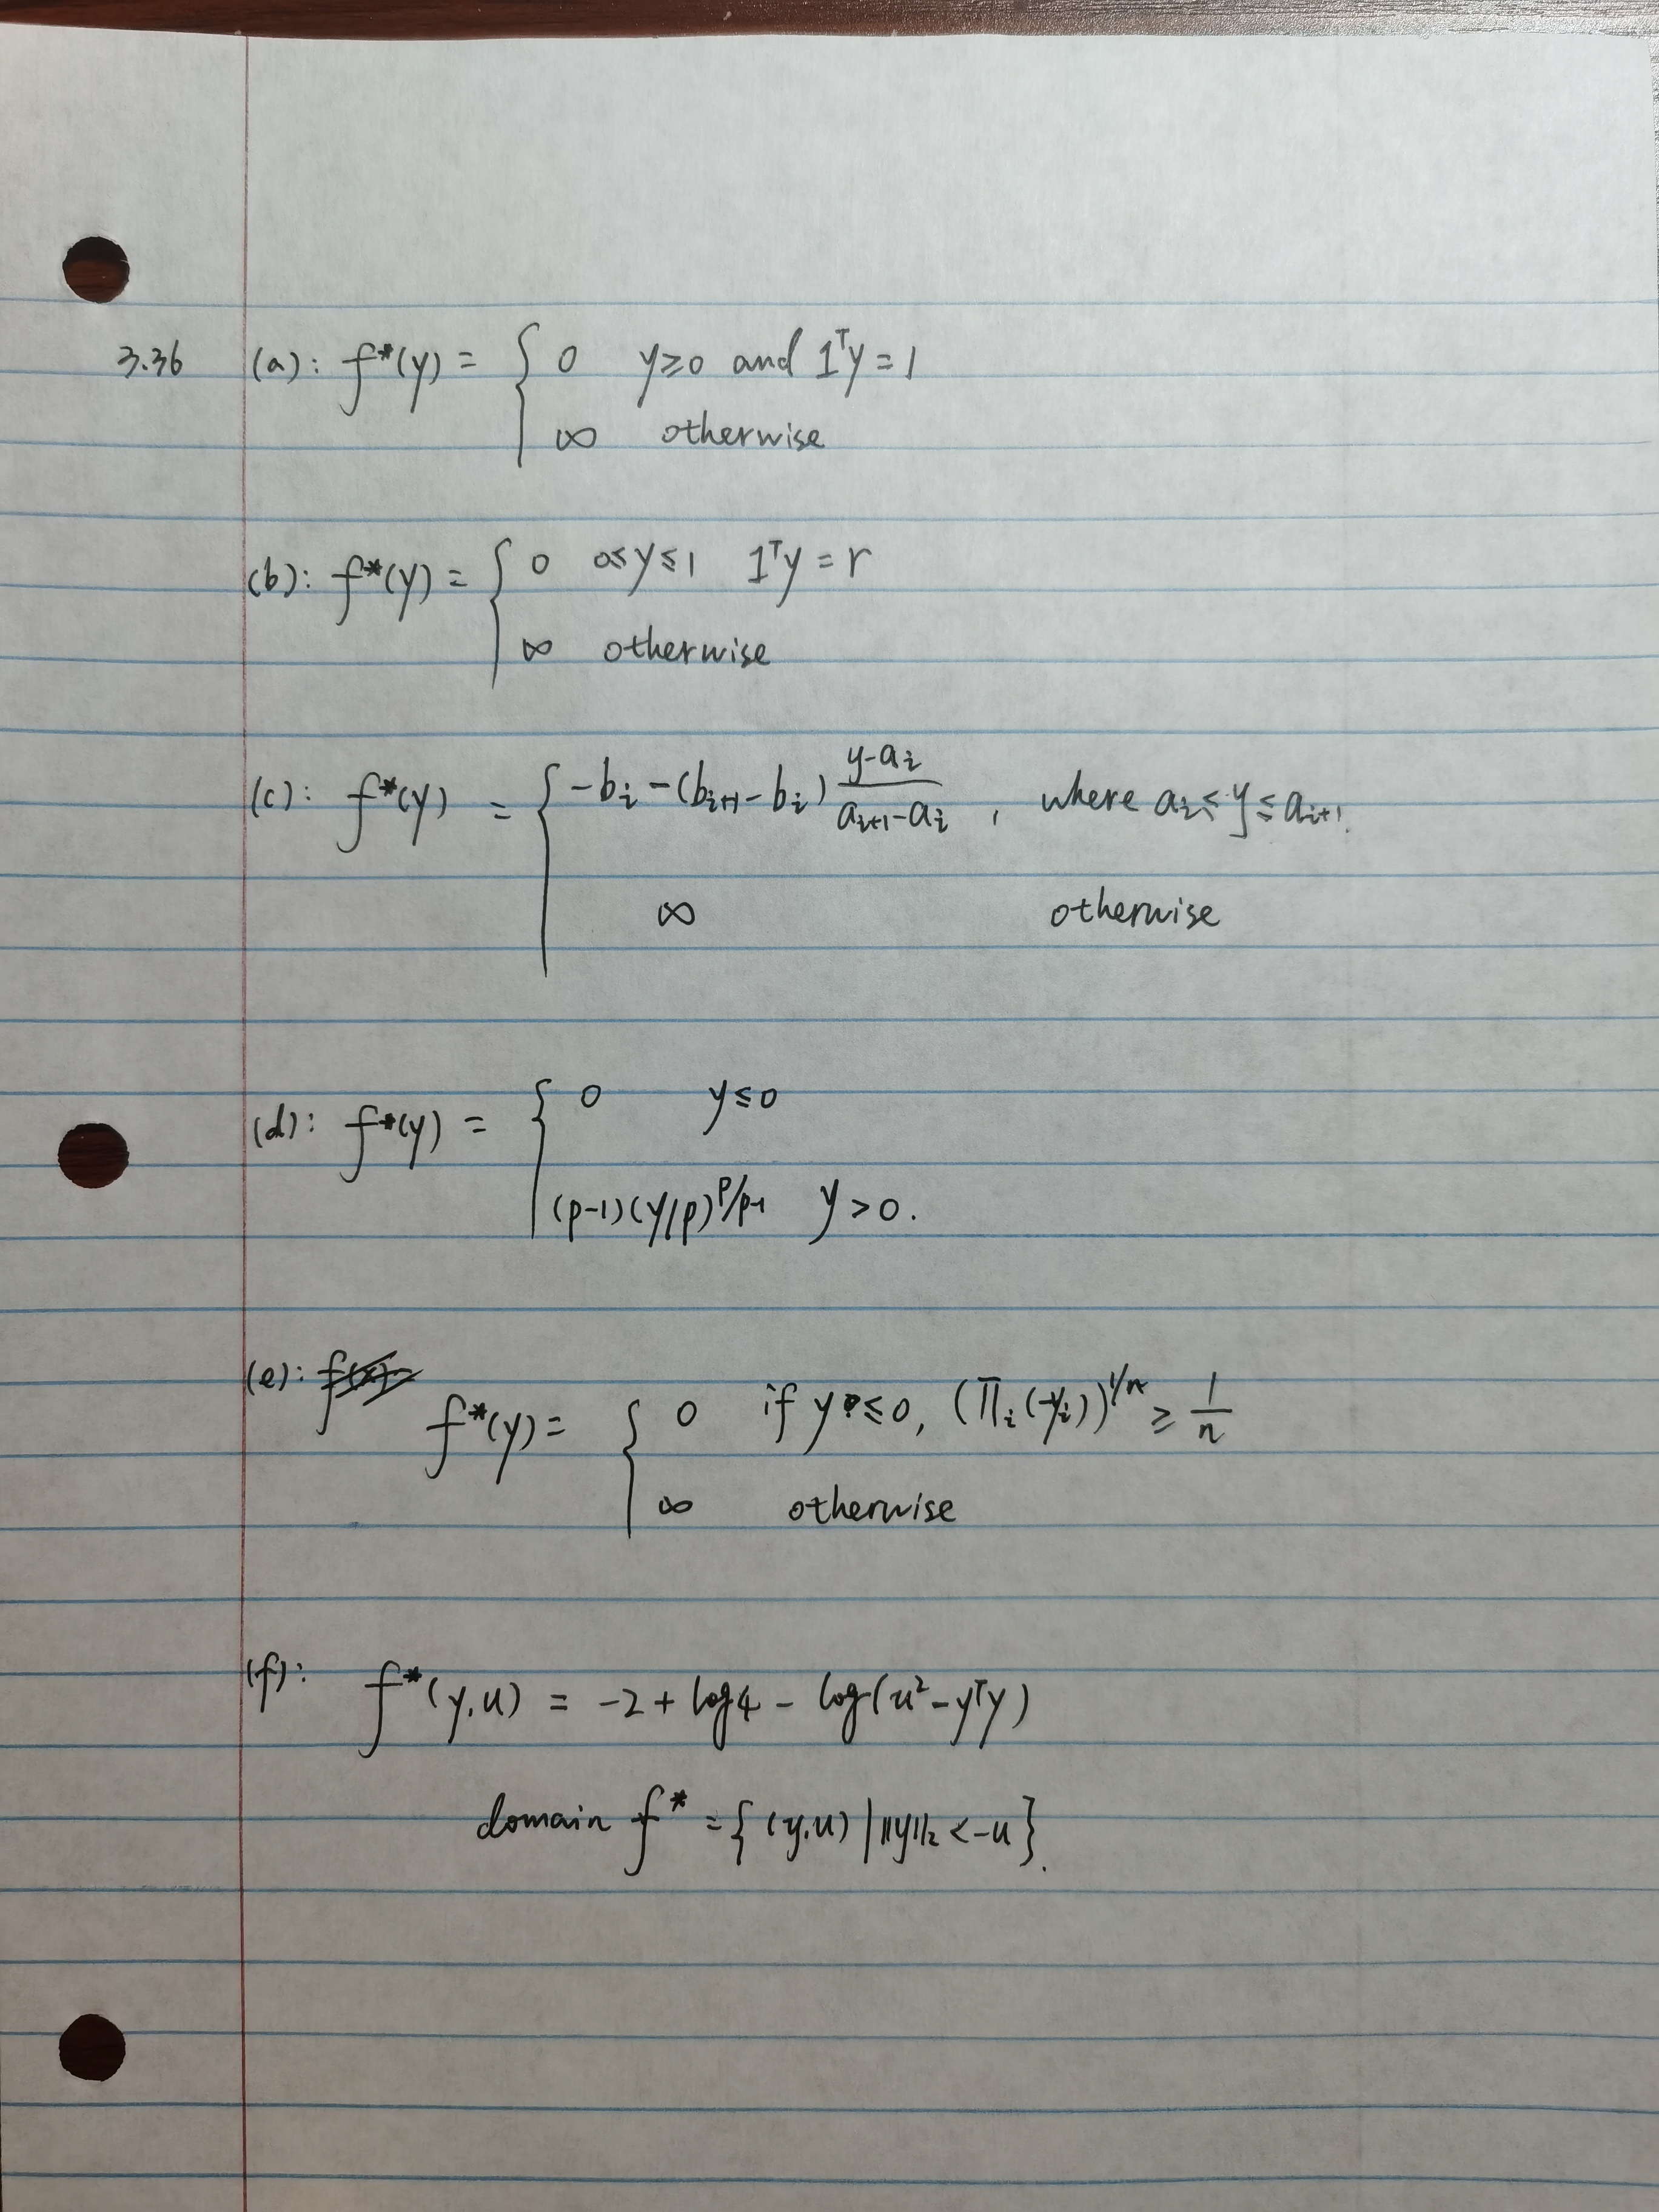 3.36 (a): f*(y) = { 0 y≥0 and 1ᵀy = 1
∞ otherwise
(b): f*(y) = { 0 0≤y≤1 1ᵀy = r
∞ otherwise
(c): f*(y) = { -bᵢ - (bᵢ₊₁ - bᵢ) (y-aᵢ)/(aᵢ₊₁-aᵢ) , where aᵢ ≤ y ≤ aᵢ₊₁.
∞ otherwise
(d): f*(y) = { 0 y≤0
(p-1)(y/p)^p/p-1 y > 0.
(e):
f*(y) = { 0 if y ≤0, (∏ᵢ(-yᵢ))^1/n ≥ 1/n
∞ otherwise
(f): f*(y,u) = -2 + log4 - log(u²-yᵀy)
domain f* = { (y,u) | ||y||₂ < -u }.